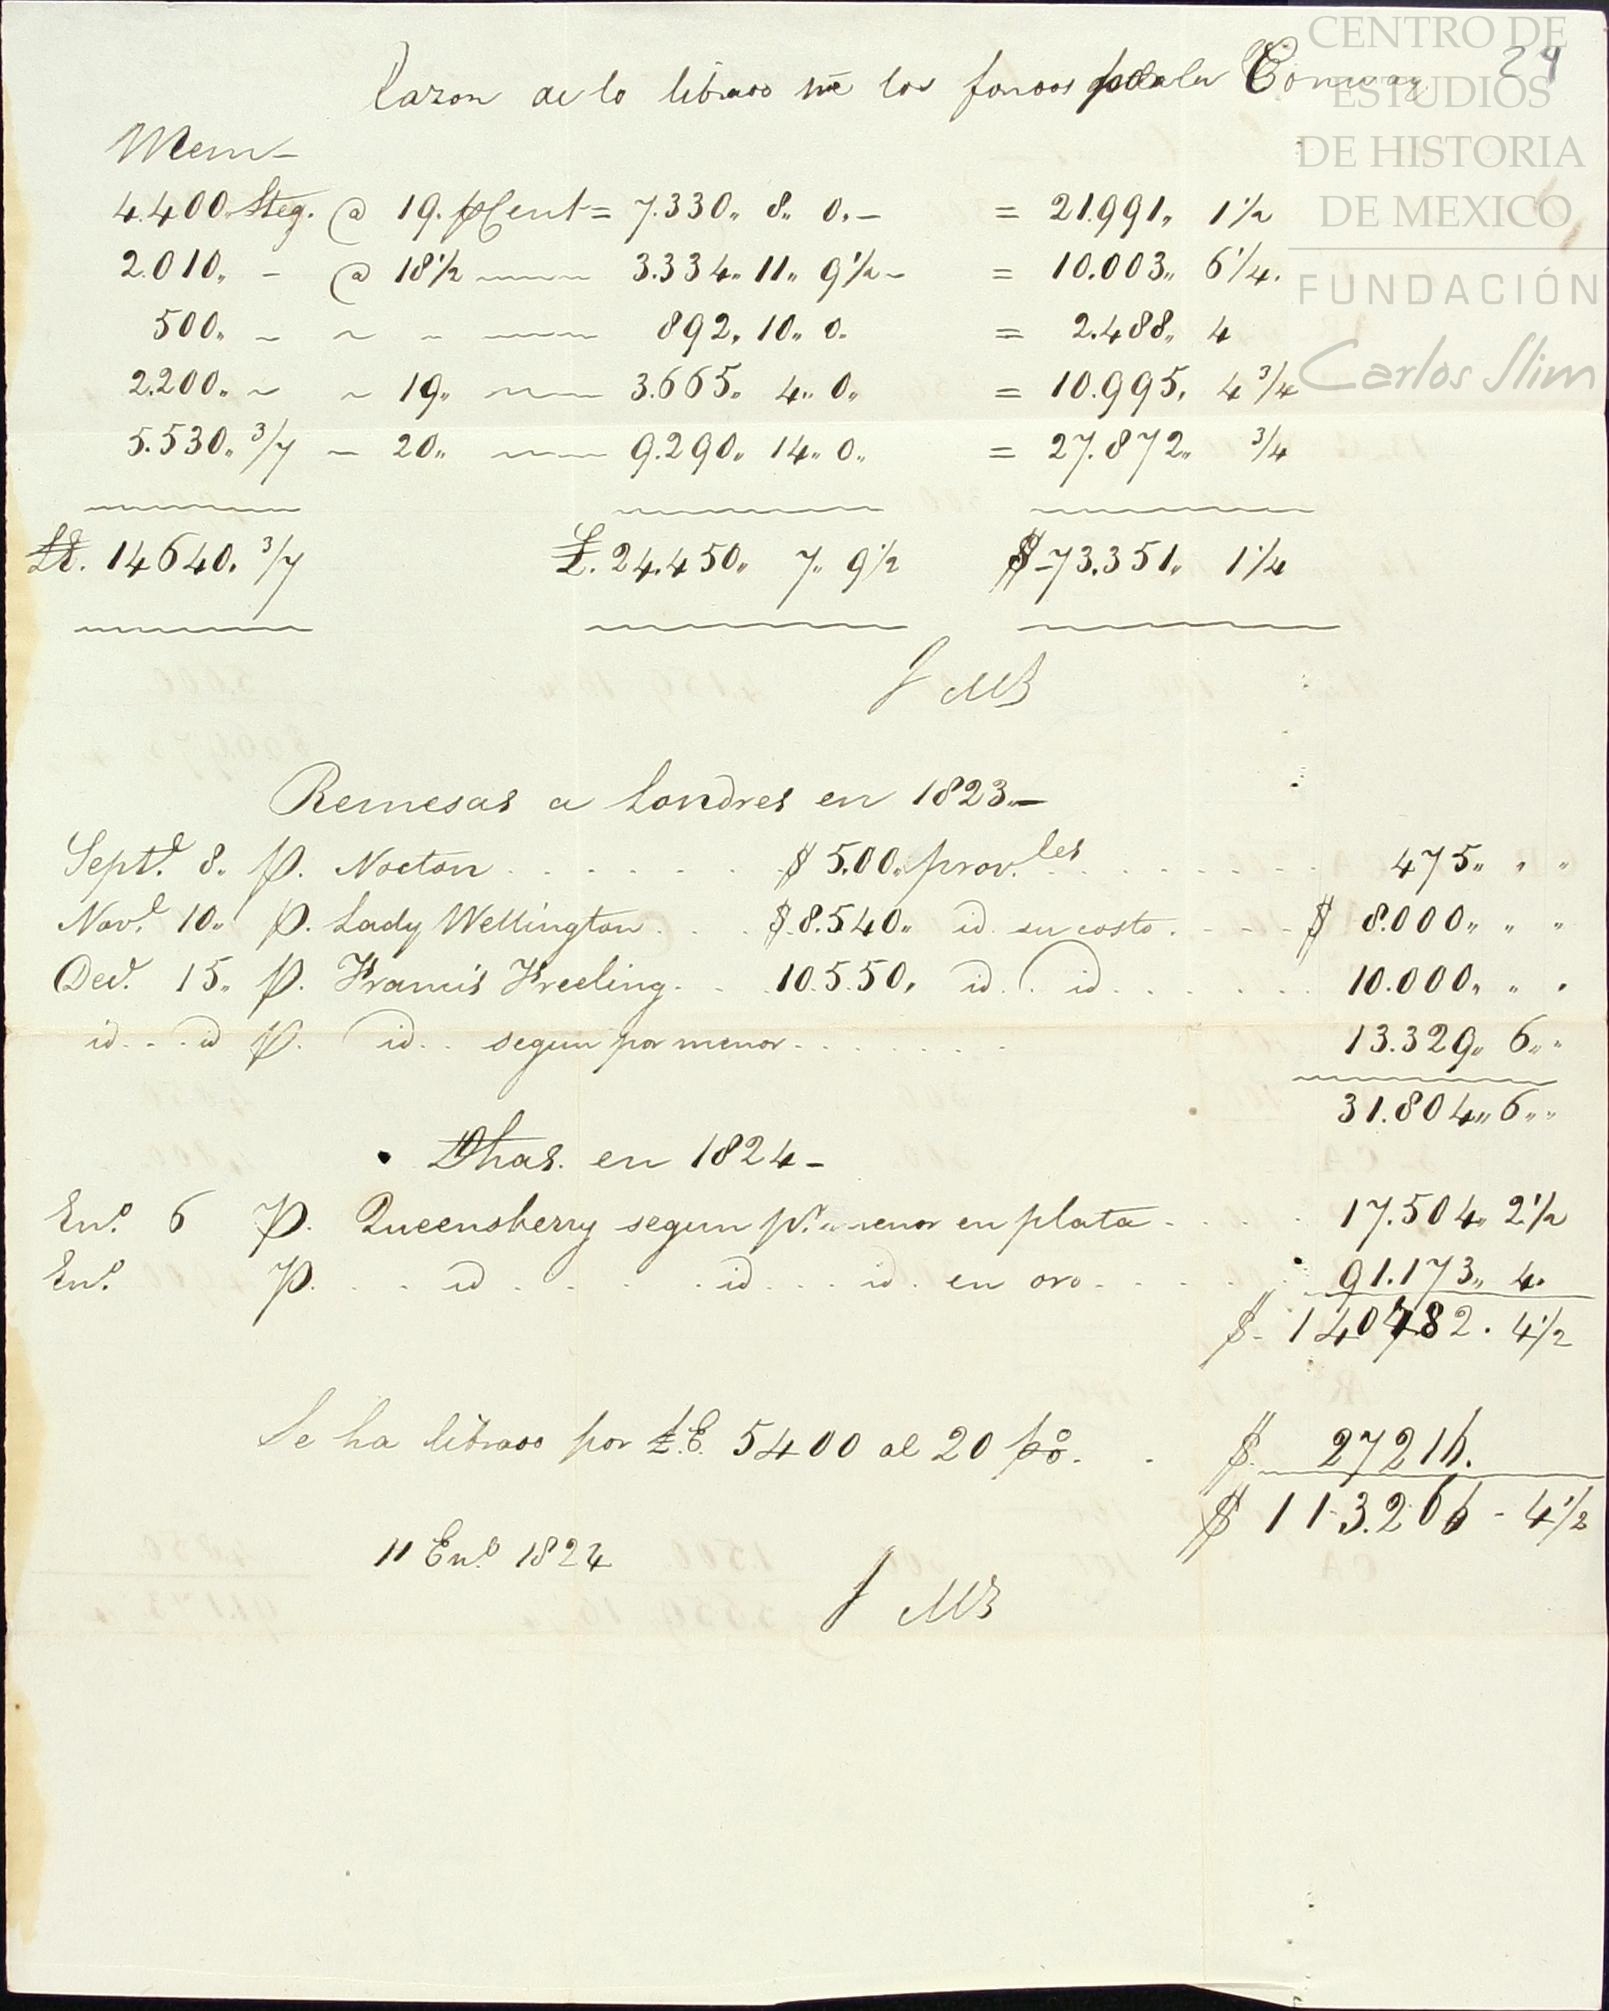 CENTRO DE
ESTUDIOS
DE HISTORIA
DE MEXICO
FUNDACIÓN
Carlos Slim
Razon de lo librado los fondos Conway
Mem
4.400. Steg. @ 19. pCent = 7.330,, 8,, 0,- = 21.991,, 1½
2.010,, - @ 18½ 3.334,, 11,, 9½ - = 10.003,, 6¼.
500,, - ~ - 892, 10,, 0. = 2.488,, 4
2.200,, ~ ~ 19,, 3.665,, 4,, 0,, = 10.995, 4¾
5.530,, 3/7 - 20,, 9.290,, 14,, 0,, = 27.872,, ¾
14640. 3/7 £. 24.450,, 7,, 9½ $-73.351,, 1¼
J MB
Remesas a Londres en 1823.-
Sept.e 8. p. Nocton $ 5.00,, prov.les 475,, ,, ,,
Nov.e 10,, p. Lady Wellington $ 8.540,, id su costo $ 8.000,, ,, ,,
Dec.e 15,, p. Francis Freeling 10.5.50, id. id 10.000,, ,, ,,
id id p. id segun por menor 13.329,, 6,, ,,
31.804,, 6,, ,,
Dhas. en 1824 -
En.o 6 p. Queensberry segun p.r menor en plata 17.504,, 2½
En.o p. id id id en oro 91.173,, 4.
$ - 140482. 4½
Se ha librado por £.E. 5400 al 20 p%. $ 27216.
$ 113.266 - 4½
11 En.o 1824
J MB